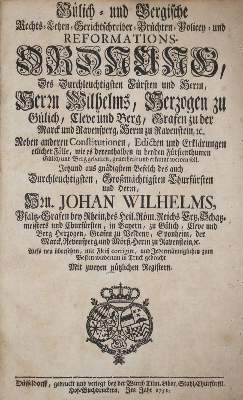 Gülich- und Bergische
Rechts- Lehen- Gerichtschreiber- Brüchten- Policey- und
REFORMATIONS-
ORDNUNG,
Des Durchleuchtigsten Fürsten und Herrn,
Herrn Wilhelms, Herzogen zu
Gülich, Cleve und Berg, Grafen zu der
Marck und Ravensperg, Herrn zu Ravenstein, ꝛc.
Neben anderen Constitutionen, Edicten und Erklärungen
etlicher Fälle, wie es derenthalben in beyden Fürstenthumen
Gülich und Berg gehalten, geurtheilt und erkannt werden soll.
Jetzund aus gnädigstem Befelch des auch
Durchleuchtigsten, Großmächtigsten Churfürsten
und Herrn,
Hrn. JOHAN WILHELMS,
Pfaltz-Grafen bey Rhein, des Heil. Röm. Reichs Ertz-Schatz-
meisters und Churfürsten, in Bayern, zu Gülich, Cleve und
Berg Hertzogen, Grafen zu Veldentz, Sponheim, der
Marck, Ravensperg und Mörß, Herrn zu Ravenstein, ꝛc.
Aufs neu übersehen, mit Fleiß corrigirt, und Jedermänniglichen zum
Besten wiederum in Truck gebracht
Mit zweyen nützlichen Registern.
Düsseldorff, gedruckt und verlegt bey der Wittib Tilm. Liber. Stahl, Churfürstl.
Hof-Buchdruckern, Im Jahr